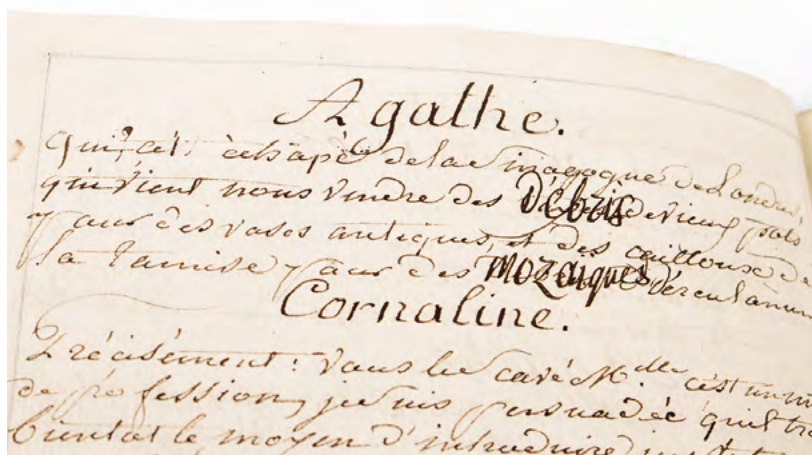 Agathe.
qui s'est échapé de la Sinagogue de Londres
qui vient nous vendre des débris de vieux pots
pour des vases antiques, et des cailloux de
la Tamise pour des mozaïques d'érculanum
Cornaline.
Précisément: vous le savé M.lle c'est un
de profession, je suis persuadée qu'il
bientot le moyen d'introduire